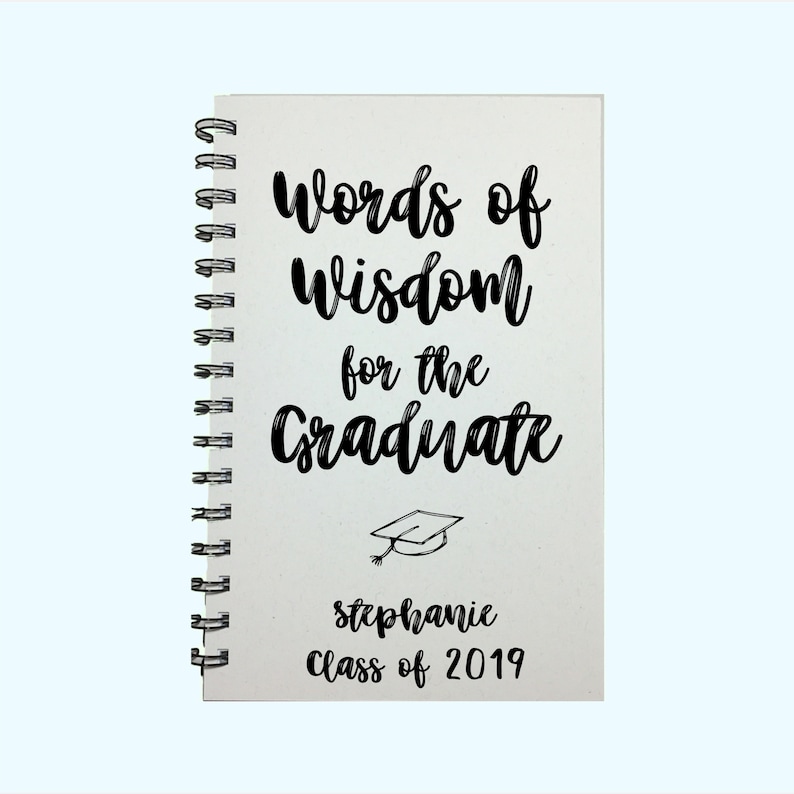 Words of
Wisdom
for the
Graduate
Stephanie
Class of 2019